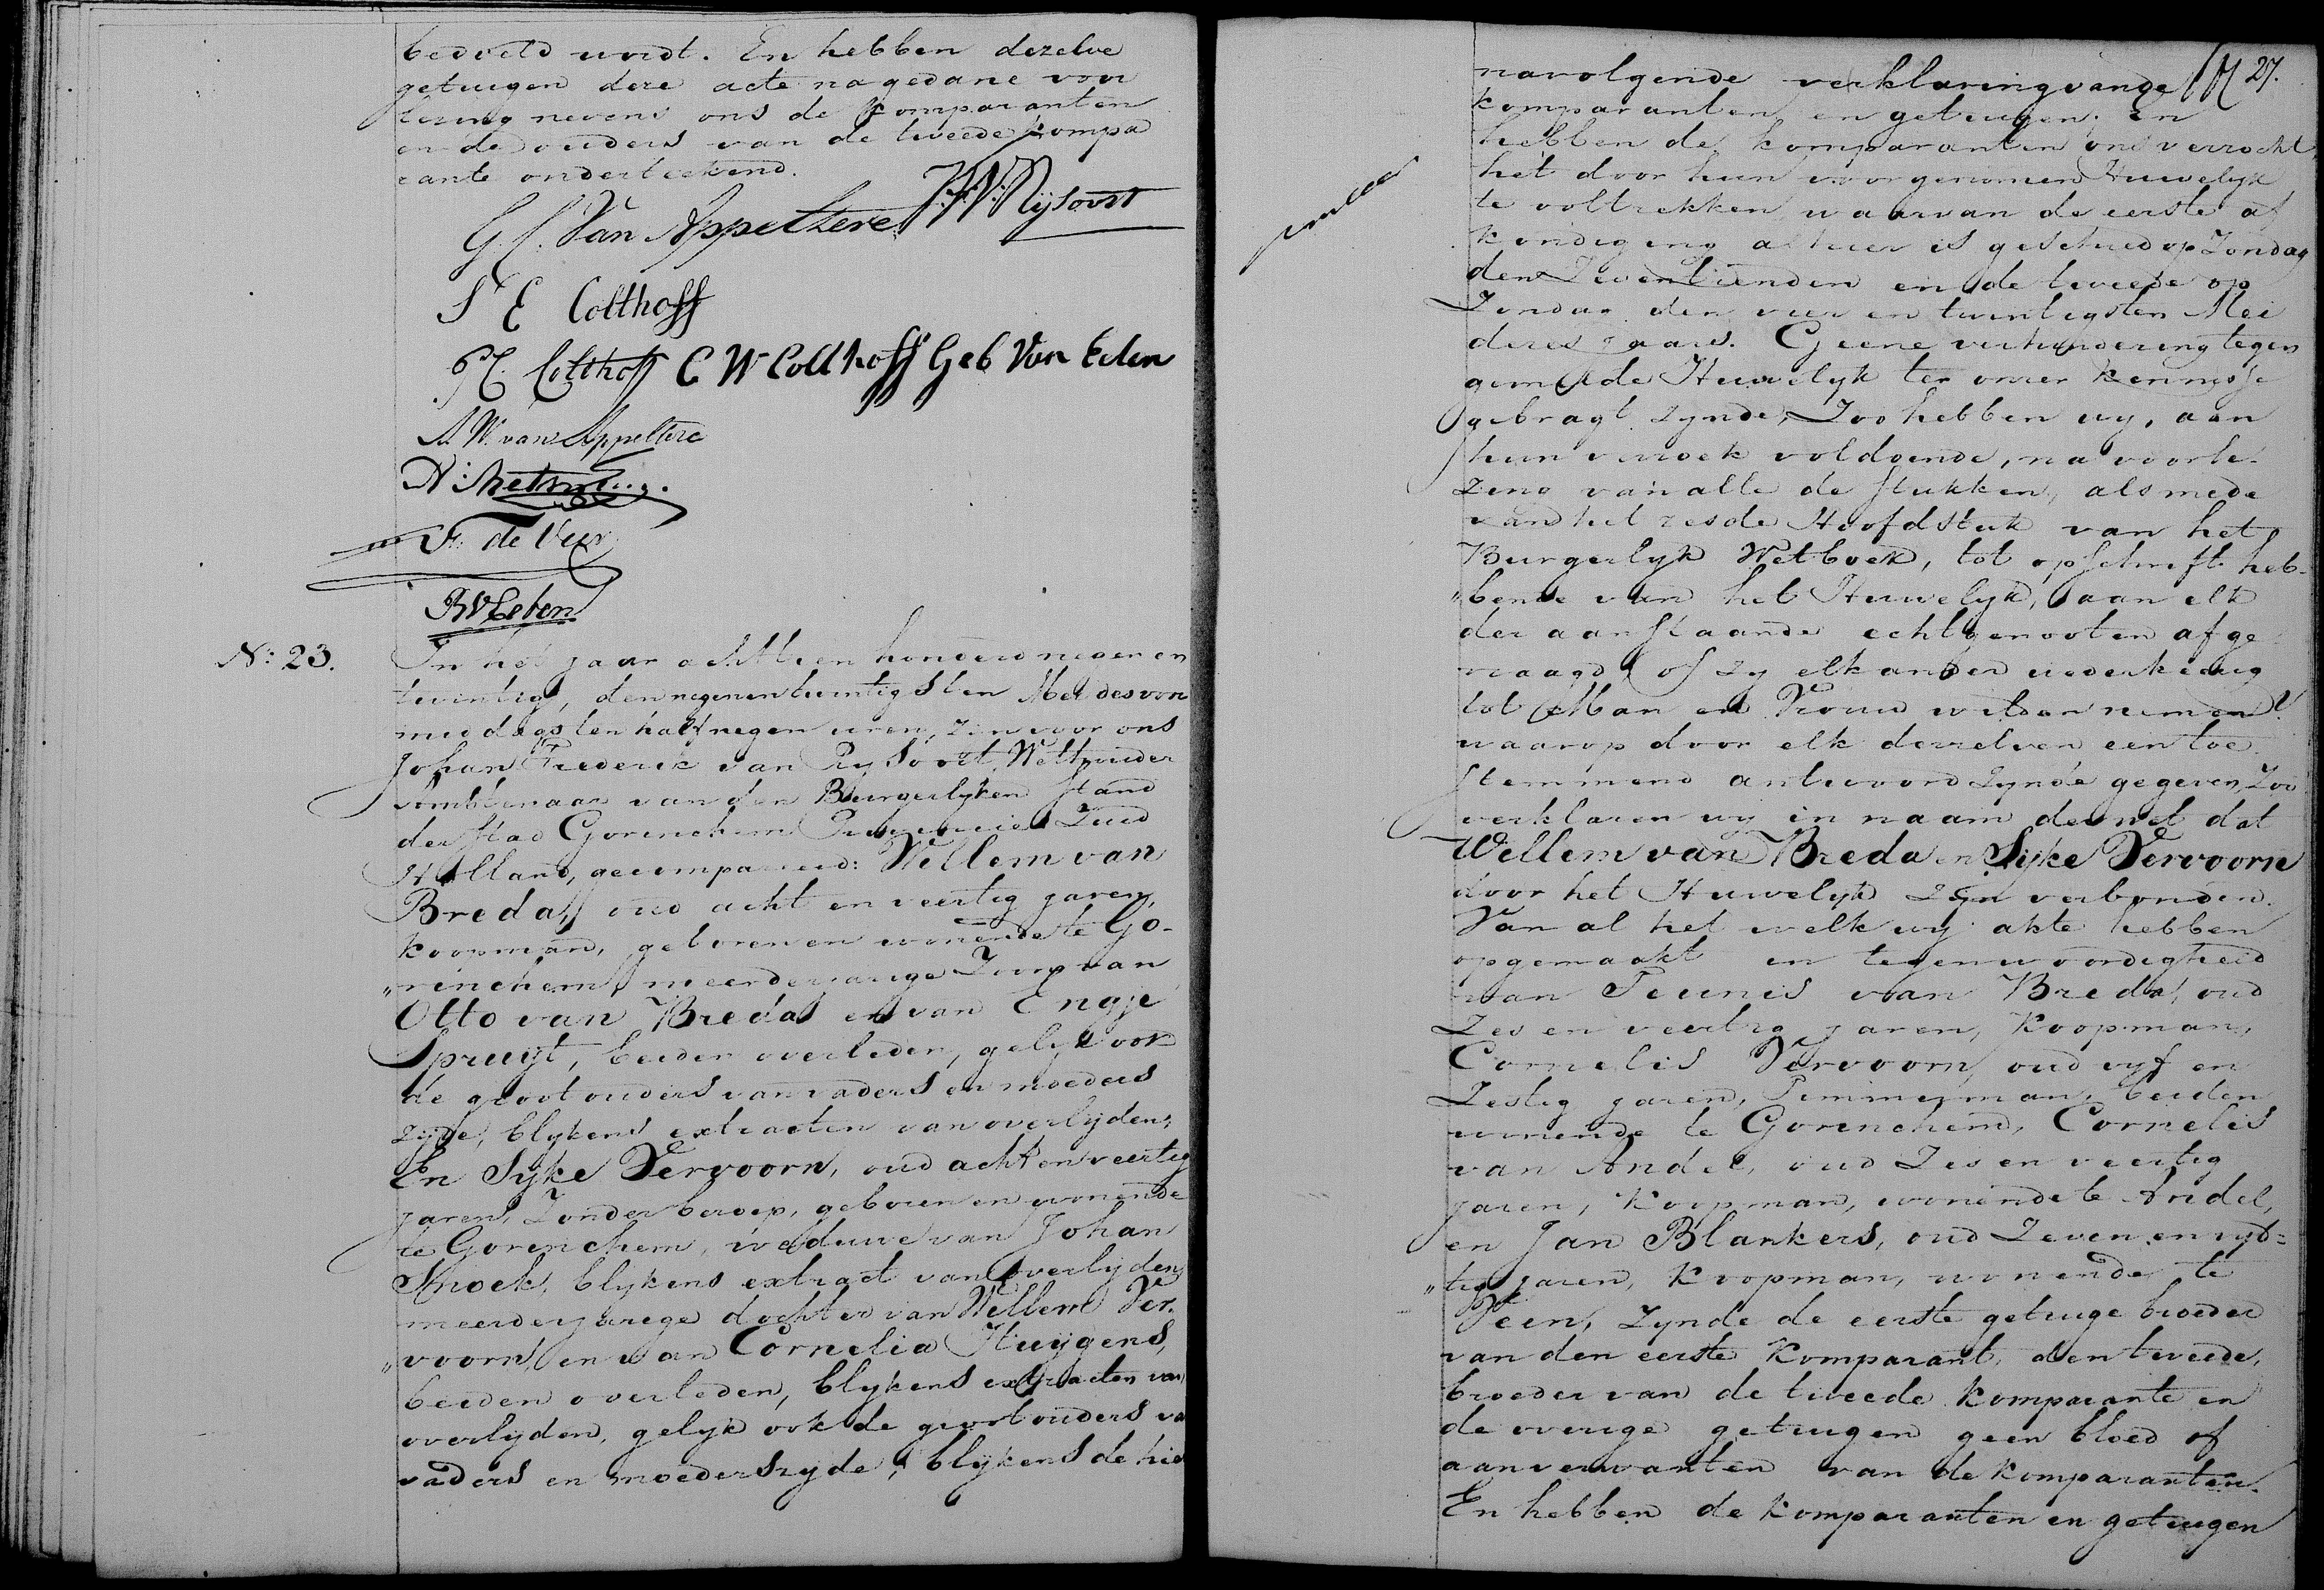 bedoeld wordt. En hebben dezelve
getuigen deze acte na gedane voor
lezing nevens ons de Komparanten
en de ouders van de tweede Kompa
rante onderteekend.
J. F. V. Rysoort
G. C. Van Appeltere
S E Colthoff
Colthoff C W Colthoff Geb Van Eelen
A. W. van Appeltere
de Veer
No: 23.
In het jaar achttien honderd negen en
twintig, den negenentwintigsten Mei des voor
middags ten half negen uren, zijn voor ons
Johan Frederik van Rysoort, Wethouder
Ambtenaar van den Burgerlyken Stand
der Stad Gorinchem Provincie Zuid
Holland, gecompareerd: Willem van
Breda, oud acht en veertig jaren,
koopman, geboren en wonende te Go-
"rinchem, meerderjarige Zoon van
Otto van Breda en van Engje
Spruijt, beiden overleden, gelyk ook
de grootouders van vaders en moeders
zijde, blykens extracten van overlyden;
En Sijke Vervoorn, oud acht en veertig
jaren, Zonder beroep, geboren en wonende
te Gorinchem, weduwe van Johan
Knoek, blykens extract van overlyden,
meerderjarige dochter van Willem Ver-
"voorn, en van Cornelia Huijgens,
beiden overleden, blykens extracten van
overlyden, gelyk ook de grootouders va
vaders en moederszyde, blijkens de hie
27.
navolgende verklaring van de
komparanten en getuigen; en
hebben de komparanten ons verzocht
het door hun voorgenomen Huwelyk
te voltrekken waarvan de eerste af
kondiging alhier is geschied op Zondag
den Zeventienden en de tweede op
Zondag den vier en twintigsten Mei
dezes jaars. Geene verhindering tegen
gemelde Huwelyk ter onzer kennisse
gebragt zynde, Zoo hebben wy, aan
hun verzoek voldoende, na voorle-
zing van alle de stukken, alsmede
van het zesde Hoofdstuk van het
Burgerlyk Wetboek, tot opschrift heb-
"bende van het Huwelyk, aan elk
der aanstaande echtgenooten afge
vraagd of zy elkander wederkeerig
tot Man en Vrouw wilden nemen?
waarop door elk derzelven een toe
stemmend antwoord zynde gegeven, Zoo
verklaren wy in naam der wet dat
Willem van Breda en Sijke Vervoorn
door het Huwelyk zyn verbonden.
Van al het welk wy akte hebben
opgemaakt in tegenwoordigheid
van Teunis van Breda, oud
Zes en veertig jaren, Koopman,
Cornelis Vervoorn, oud vyf en
Zestig jaren, Timmerman, beiden
wonende te Gorinchem, Cornelis
van Andel, oud Zes en veertig
jaren, Koopman, wonende te Andel,
en Jan Blankers, oud Zeven en vyf=
"tig jaren, Koopman, wonende te
Veen, Zynde de eerste getuige broeder
van den eerste Komparant, den tweede,
broeder van de tweede Komparante en
de overige getuigen geen bloed of
aanverwanten van de Komparanten.
En hebben de Komparanten en getuigen